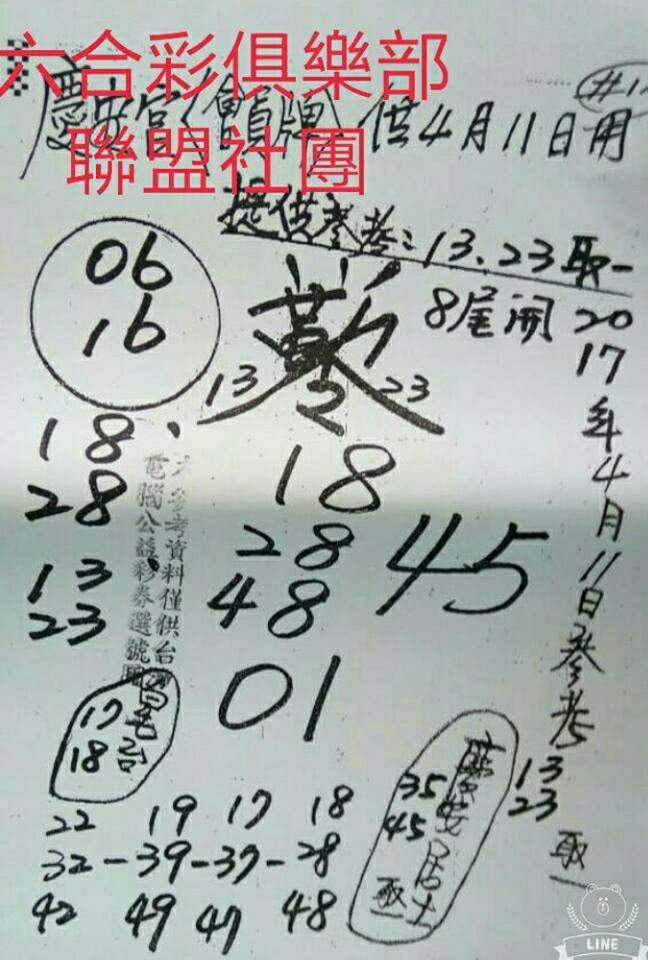 六合彩俱樂部
聯盟社團
慶安宮 供4月11日用
提供參考:13.23取一
8尾開
06
16
13 23
2017年4月11日參考
13
23
取一
18、
28
13
23
本參考資料僅供台灣
電腦公益彩券選號用
18
28
48
45
01
17
18
22 19 17 18
32-39-37-28
42 49 47 48
35
45
居士
取一
LINE